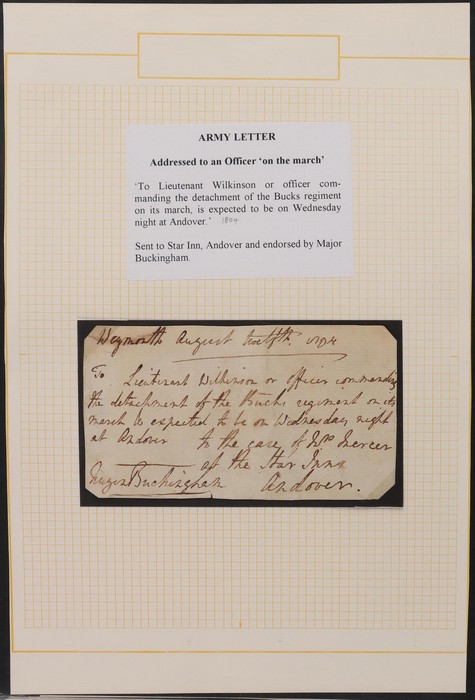 ARMY LETTER
Addressed to an Officer ‘on the march’
‘To Lieutenant Wilkinson or officer com-
manding the detachment of the Bucks regiment
on its march, is expected to be on Wednesday
night at Andover.’ 1804
Sent to Star Inn, Andover and endorsed by Major
Buckingham.
Weymouth August twelfth. 1804
To Lieutenant Wilkinson or officer commanding
the detachment of the Bucks regiment on its
march is expected to be on Wednesday night
at Andover to the care of Mrs Mercer
at the Star Inn
Buckingham Andover.